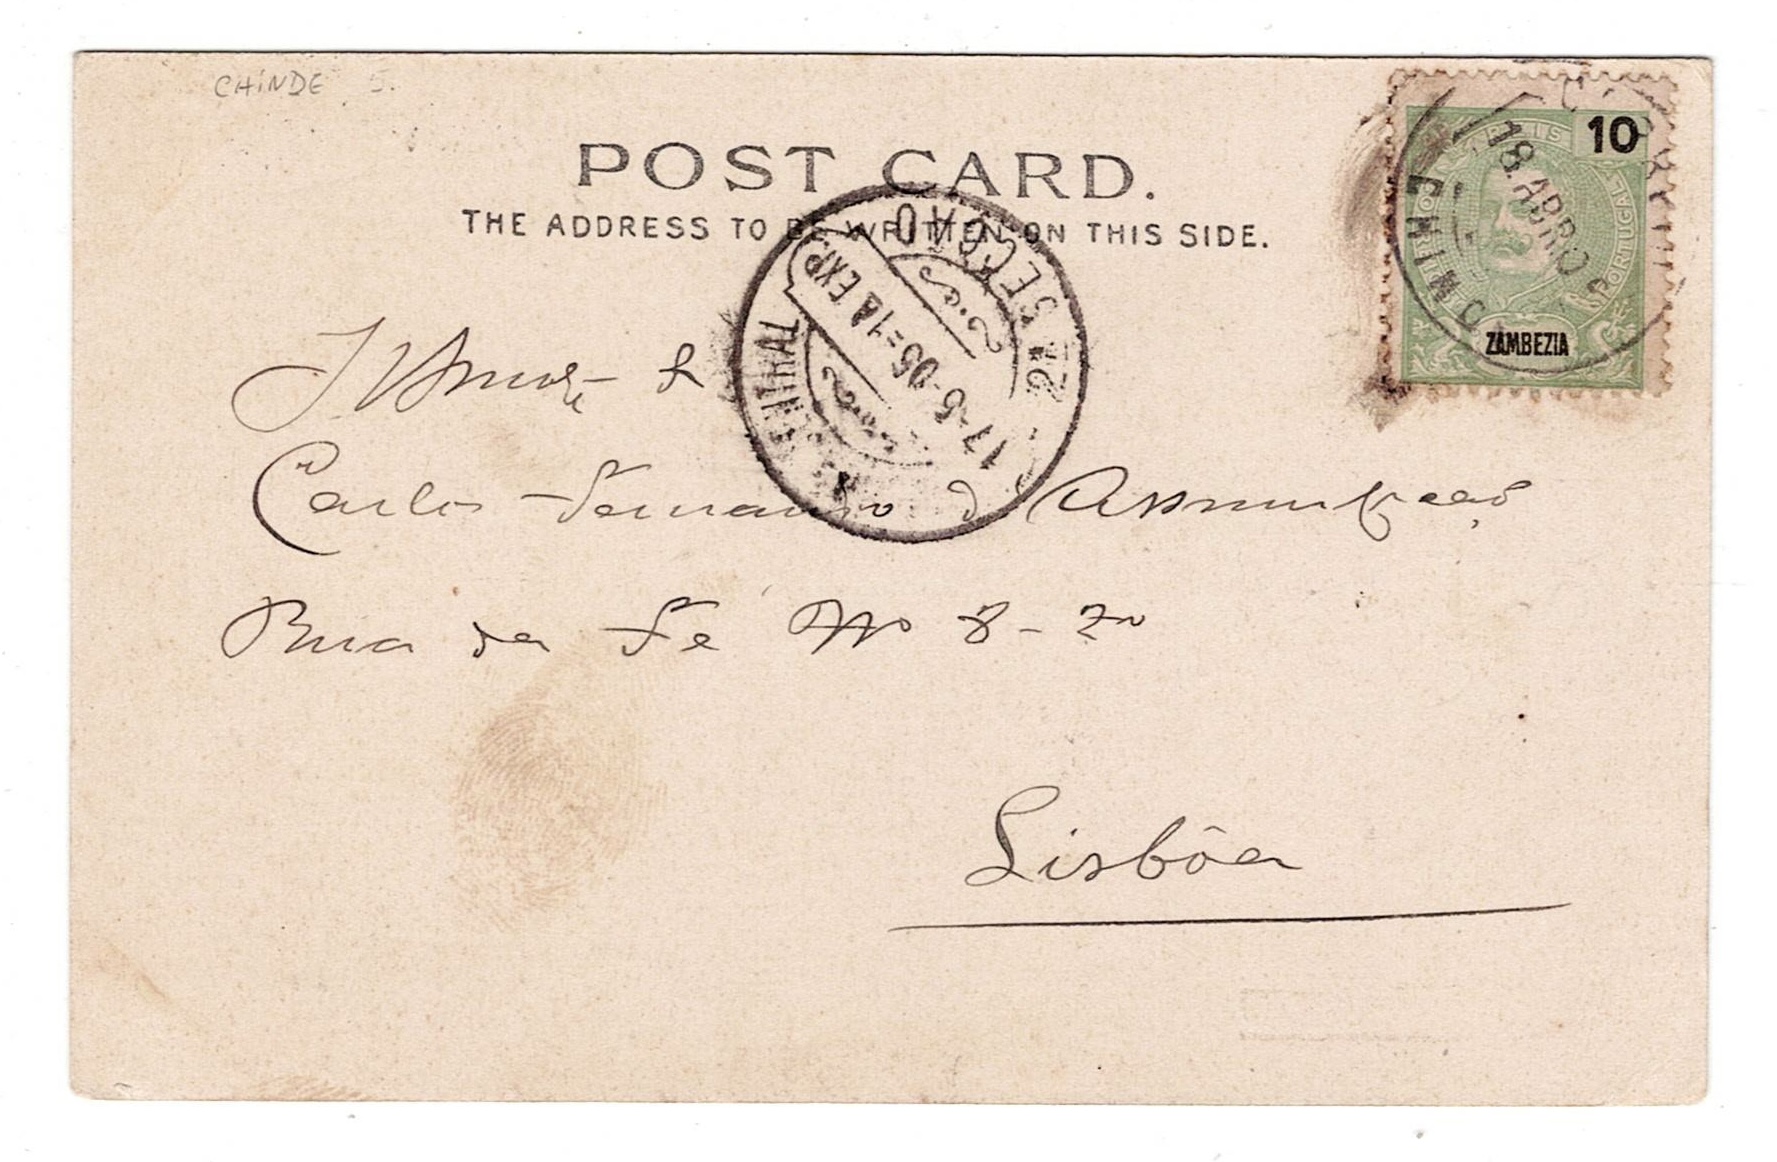 CHINDE 5.
POST CARD.
THE ADDRESS TO BE WRITTEN ON THIS SIDE.
REIS 10
PORTUGAL
ZAMBEZIA
CHINDE
18.ABR.
CENTRAL
2A SECÇÃO
17-5-05=1A EXP.
Carlos Fernando d' Assumpção
Rua da Fé No 8-2o
Lisbôa